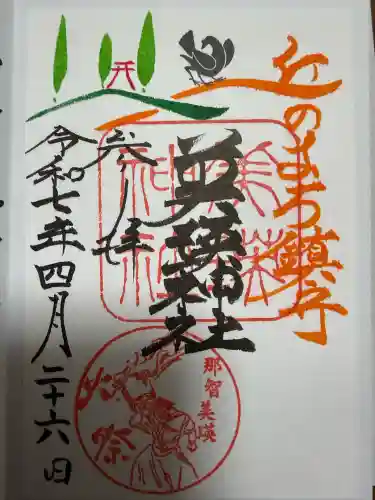 丘のまち鎮守
美瑛神社
奉拝
令和七年四月二十六日
美瑛神社
那智美瑛
火祭